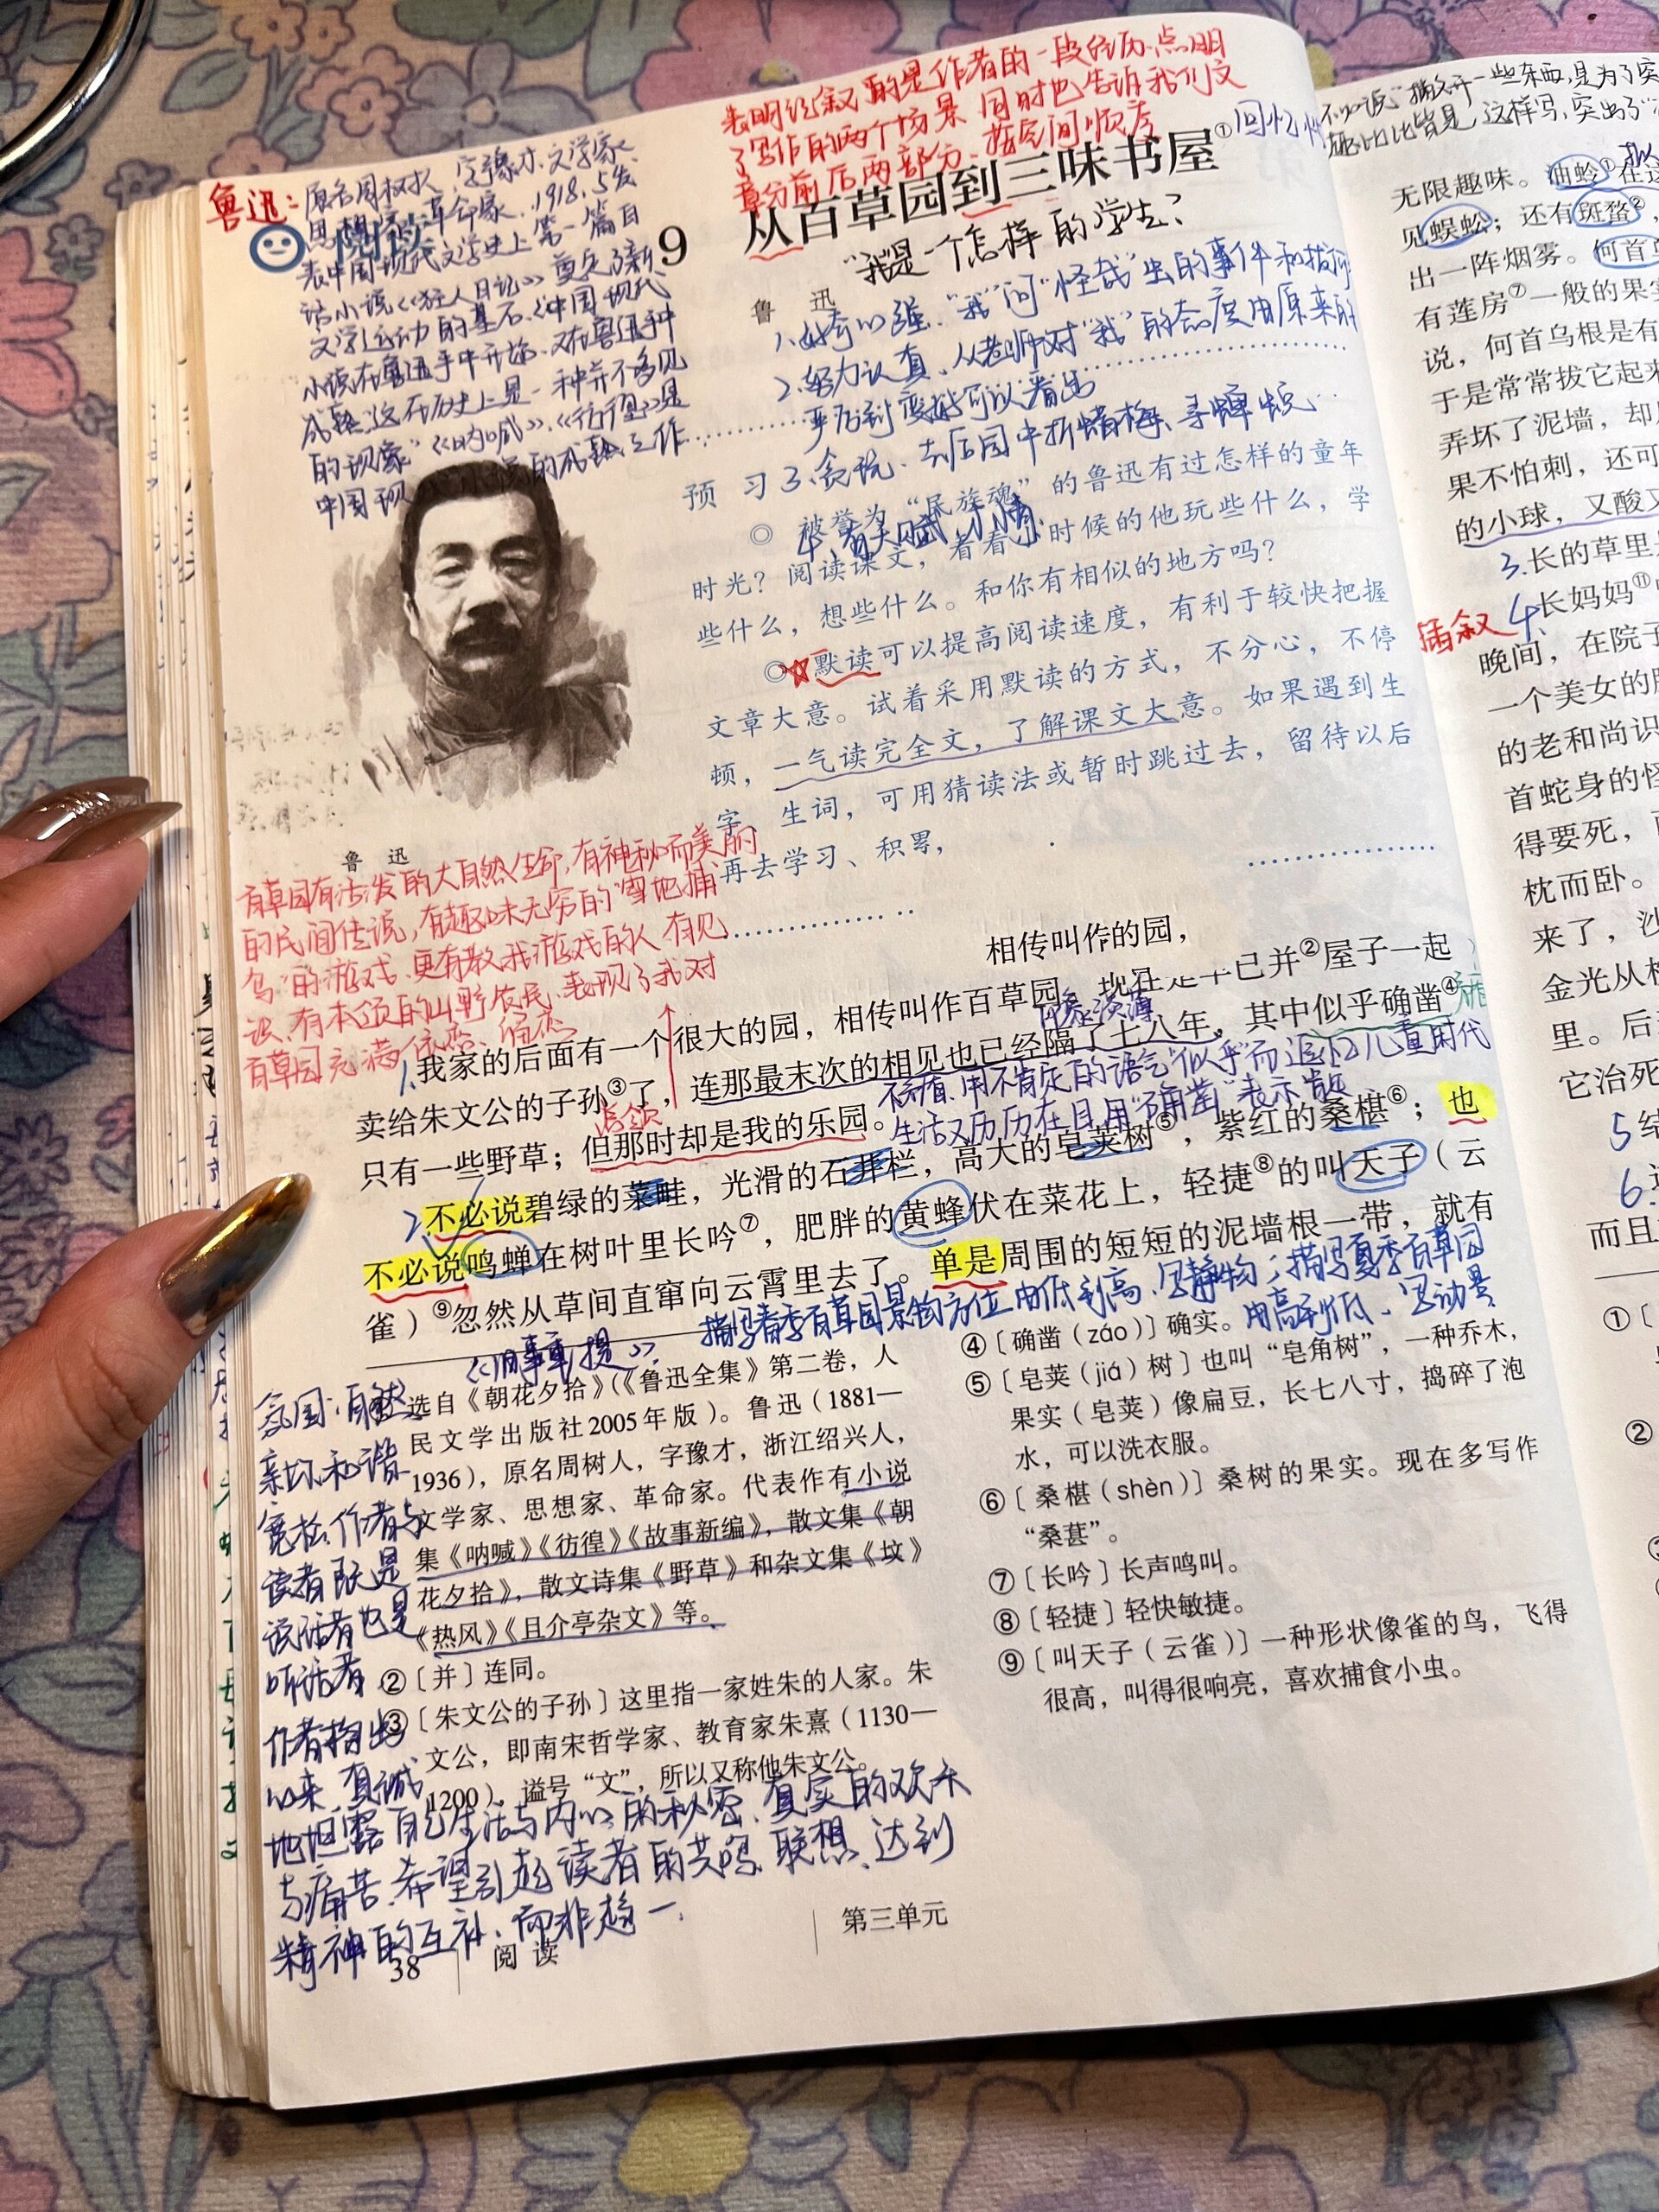 表明记叙的是作者的一段经历.点明
了写作的两个场景 同时也告诉我们文
章分前后两部分、按空间顺序
鲁迅：原名周树人，字豫才.文学家
思想家 革命家. 1918.5发
表中国现代文学史上第一篇白
话小说《狂人日记》奠定了新
文学运动的基石.《中国现代
小说在鲁迅手中开始.又在鲁迅手中
成熟.这在历史上是一种并不多见
的现象"《呐喊》、《彷徨》是
中国现
的成熟之作
阅读
9
从百草园到三味书屋①
回忆
"我是一个怎样的学生？
鲁 迅
1、好奇心强."我"问"怪哉"虫的事件和拔何
2.努力认真、从老师对"我"的态度由原来的
严厉到变好可以看出
3、贪玩、去后园中折蜡梅、寻蝉蜕
预 习
◎ 被誉为“民族魂”的鲁迅有过怎样的童年
时光？阅读课文，看看小时候的他玩些什么，学
些什么，想些什么。和你有相似的地方吗？
◎ 默读可以提高阅读速度，有利于较快把握
文章大意。试着采用默读的方式，不分心，不停
顿，一气读完全文，了解课文大意。如果遇到生
字、生词，可用猜读法或暂时跳过去，留待以后
再去学习、积累，
鲁 迅
百草园有活泼的大自然生命,有神秘而美丽
的民间传说,有趣味无穷的"雪地捕
鸟"的游戏.更有教我游戏的人.有见
识、有本领的山野农民.表现了我对
百草园充满依恋、留恋
相传叫作的园，
1.我家的后面有一个很大的园，相传叫作百草园。现在是早已并②屋子一起
卖给朱文公的子孙③了，连那最末次的相见也已经隔了七八年，其中似乎确凿④
印象淡薄
不矛盾.用不肯定的语气"似乎"而追忆儿童时代
只有一些野草；但那时却是我的乐园。
生活又历历在目.用"确凿"表示
总领
2.不必说碧绿的菜畦，光滑的石井栏，高大的皂荚树⑤，紫红的桑椹⑥；也
不必说鸣蝉在树叶里长吟⑦，肥胖的黄蜂伏在菜花上，轻捷⑧的叫天子（云
雀）⑨忽然从草间直窜向云霄里去了。单是周围的短短的泥墙根一带，就有
描写春季百草园景物方位由低到高、写静物；描写夏季百草园
由高到低、写动景
《旧事重提》
选自《朝花夕拾》（《鲁迅全集》第二卷，人
民文学出版社2005年版）。鲁迅（1881—
1936），原名周树人，字豫才，浙江绍兴人，
文学家、思想家、革命家。代表作有小说
集《呐喊》《彷徨》《故事新编》，散文集《朝
花夕拾》，散文诗集《野草》和杂文集《坟》
《热风》《且介亭杂文》等。
② 〔并〕连同。
③ 〔朱文公的子孙〕这里指一家姓朱的人家。朱
文公，即南宋哲学家、教育家朱熹（1130—
1200），谥号“文”，所以又称他朱文公。
④〔确凿（záo）〕确实。
⑤〔皂荚（jiá）树〕也叫“皂角树”，一种乔木，
果实（皂荚）像扁豆，长七八寸，捣碎了泡
水，可以洗衣服。
⑥〔桑椹（shèn）〕桑树的果实。现在多写作
“桑葚”。
⑦〔长吟〕长声鸣叫。
⑧〔轻捷〕轻快敏捷。
⑨〔叫天子（云雀）〕一种形状像雀的鸟，飞得
很高，叫得很响亮，喜欢捕食小虫。
氛围:自然
亲切.和谐
宽松.作者与
读者既是
说话者也是
听话者
作者掏出
心来.真诚
地坦露自己生活与内心的秘密、真实的欢乐
与痛苦.希望引起读者的共鸣、联想、达到
精神的互补、而非趋一.
38
阅 读
第三单元
不必说"描
开一些东西,是为了突
比比皆是 这样写,突出了
无限趣味。油蛉①在这
见蜈蚣；还有斑蝥②，
出一阵烟雾。何首
有莲房⑦一般的果实
说，何首乌根是有
于是常常拔它起来
弄坏了泥墙，却
果不怕刺，还可
的小球，又酸又
3.长的草里
插叙
4长妈妈⑪
晚间，在院子
一个美女的
的老和尚识
首蛇身的怪
得要死，
枕而卧。
来了，沙
金光从
里。后
它治死
5结
6.
而且
①〔
②